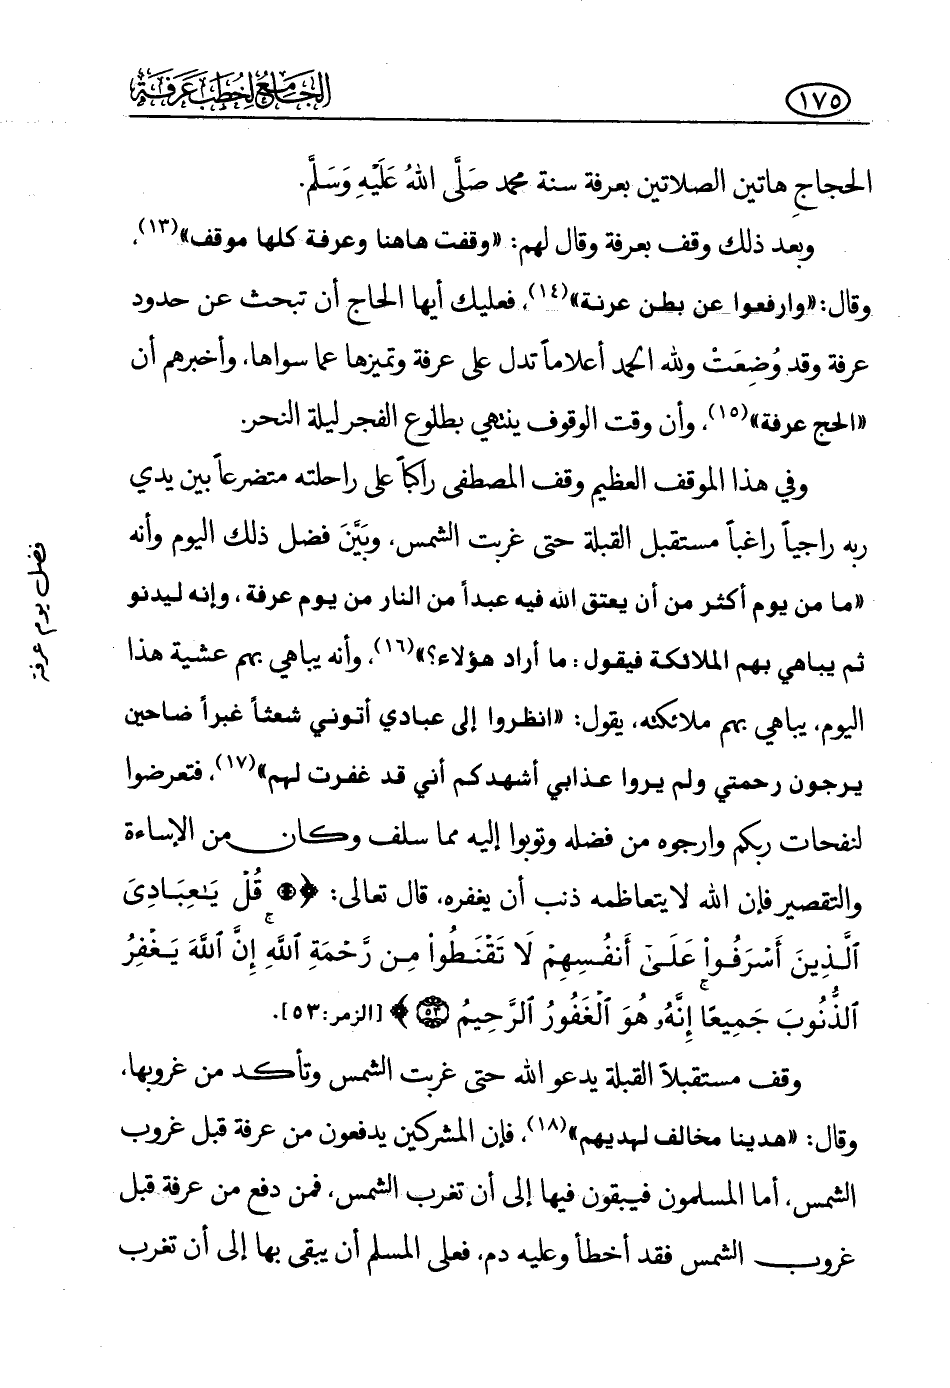 ١٧٥
الجامع لخطب عرفة
الحجاج هاتين الصلاتين بعرفة سنة محمد صَلَّى اللهُ عَلَيْهِ وَسَلَّمَ.
وبعد ذلك وقف بعرفة وقال لهم: «وقفت هاهنا وعرفة كلها موقف»(١٣)،
وقال: «وارفعوا عن بطن عرنة»(١٤)، فعليك أيها الحاج أن تبحث عن حدود
عرفة وقد وُضِعَتْ ولله الحمد أعلاماً تدل على عرفة وتميزها عما سواها، وأخبرهم أن
«الحج عرفة»(١٥)، وأن وقت الوقوف ينتهي بطلوع الفجر ليلة النحر.
وفي هذا الموقف العظيم وقف المصطفى راكباً على راحلته متضرعاً بين يدي
ربه راجياً راغباً مستقبل القبلة حتى غربت الشمس، وبَيَّنَ فضل ذلك اليوم وأنه
«ما من يوم أكثر من أن يعتق الله فيه عبداً من النار من يوم عرفة، وإنه ليدنو
ثم يباهي بهم الملائكة فيقول: ما أراد هؤلاء؟»(١٦)، وأنه يباهي بهم عشية هذا
اليوم، يباهي بهم ملائكته، يقول: «انظروا إلى عبادي أتوني شعثاً غبراً ضاحين
يرجون رحمتي ولم يروا عذابي أشهدكم أني قد غفرت لهم»(١٧)، فتعرضوا
لنفحات ربكم وارجوه من فضله وتوبوا إليه مما سلف وكان من الإساءة
والتقصير فإن الله لا يتعاظمه ذنب أن يغفره، قال تعالى: ﴿۞ قُلْ يَـٰعِبَادِىَ
ٱلَّذِينَ أَسْرَفُوا۟ عَلَىٰٓ أَنفُسِهِمْ لَا تَقْنَطُوا۟ مِن رَّحْمَةِ ٱللَّهِ ۚ إِنَّ ٱللَّهَ يَغْفِرُ
ٱلذُّنُوبَ جَمِيعًا ۚ إِنَّهُۥ هُوَ ٱلْغَفُورُ ٱلرَّحِيمُ ۝٥٣﴾ [الزمر:٥٣].
وقف مستقبلاً القبلة يدعو الله حتى غربت الشمس وتأكد من غروبها،
وقال: «هدينا مخالف لهديهم»(١٨)، فإن المشركين يدفعون من عرفة قبل غروب
الشمس، أما المسلمون فيبقون فيها إلى أن تغرب الشمس، فمن دفع من عرفة قبل
غروب الشمس فقد أخطأ وعليه دم، فعلى المسلم أن يبقى بها إلى أن تغرب
فضل يوم عرفة